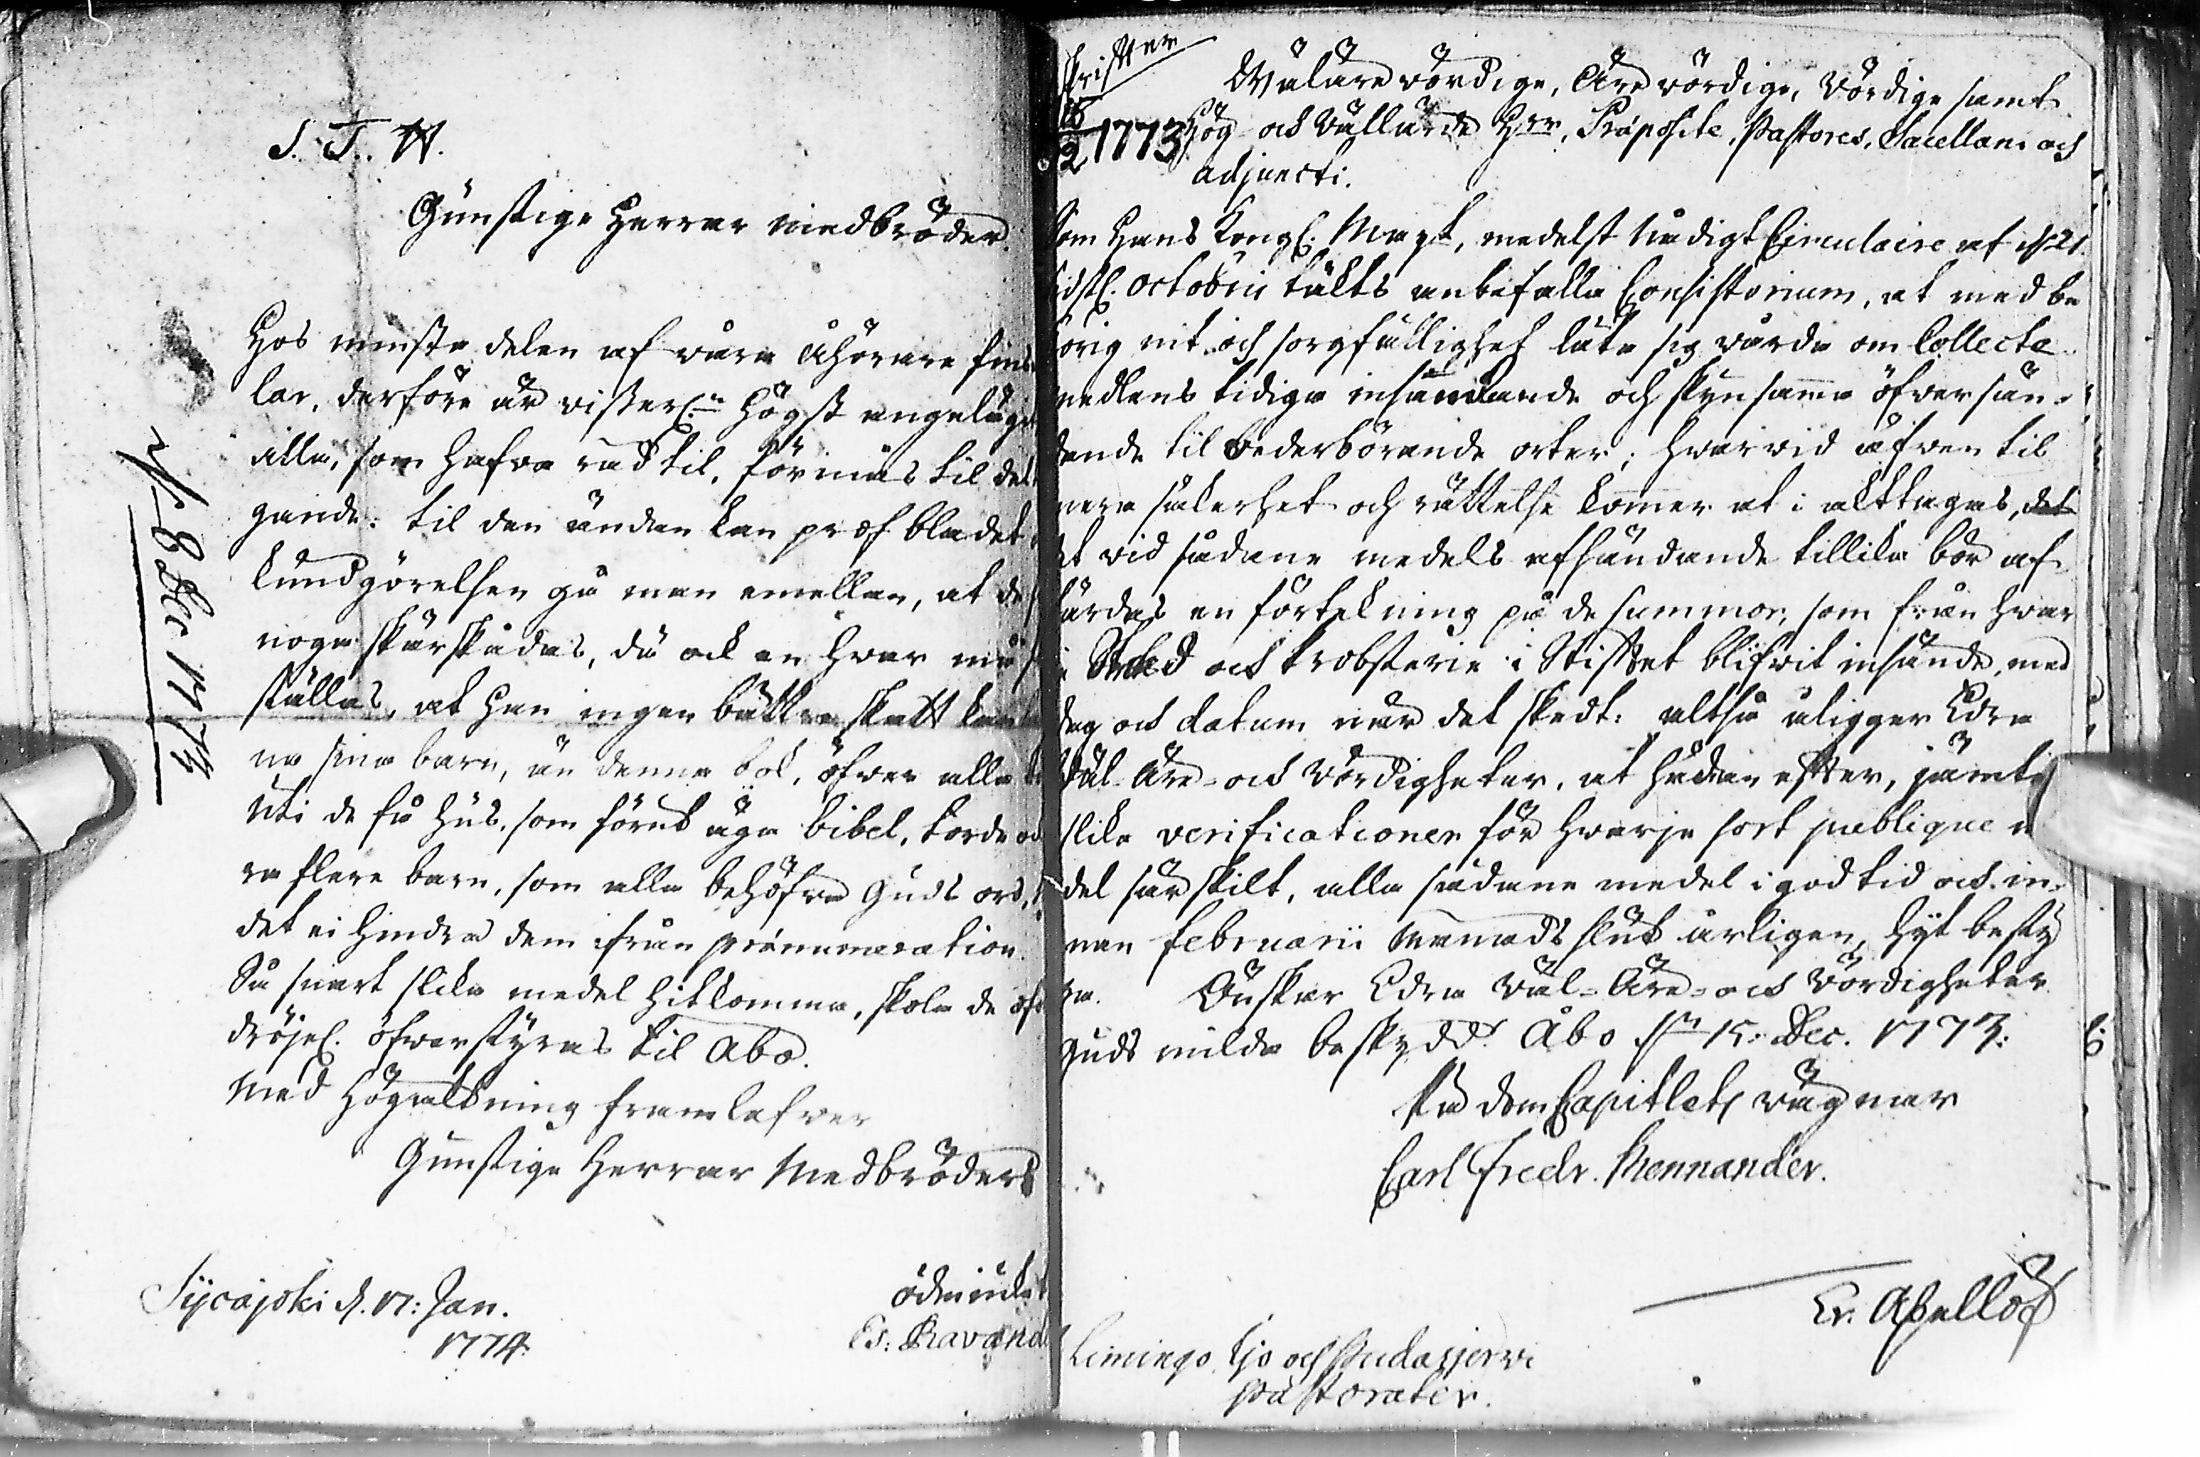 S. T. N.
Gunstige Herrar medbröder
Hos minsta delen af våra Åhörare fins
lar, derföre är visserl:n högst angeläg
alla, som hafva råd til, förmås til det
gande: til den ändan kan prof bladet
kundgörelsen gå man emellan, at de
noga skärskådas, då ock en hvar må
ställas, at han ingen bättre skatt kan
na sina barn, än denna bok, öfver alla
Uti de få hus, som förut äga bibel, torde
ra flera barn, som alla behöfva Guds ord,
det ei hindra dem ifrån prænumeration.
Så snart slika medel hitkomma, skola de
dröjel. öfverstyras til Åbo.
Med högaktning framlefver
Gunstige Herrar Medbröders
ödmiukt
Sijcajoki d. 17: Jan.
1774.
Es: Ravand
N 8 Dec 1773
skrifter
15/12 1773
Wäl äre vördige, Äre vördige, Vördige samt
Hög- och Vällärde Herr, Præposite, Pastores, Sacellani och
adjuncti.
Som Hans Kongl: Maij:t, medelst nådigt Circulaire af d. 21.
sidstl. octobris täkts anbefalla Consistorium, at med be
hörig nit och sorgfällighet låta sig vårda om Collecte
medlens tidiga insändande och skynsamma öfversän-
dande til vederbörande orter; hvarvid äfven til
mera säkerhet och rättelse kommer at i akttagas, det
at vid sådane medels afsändande tillika bör af
färdas en förtekning på de summor, som från hvar
i Stad och Probsterie i Stiftet blifvit insände, med
dag och datum när det skedt: altså åligger Edra
Wäl- Äre- och Vördigheter, at hädan efter, jämte
slika verificationer för hvarje sort publique
del särskilt, alla sådane medel i god tid och in-
nan februarii månads slut årligen, hijt besty
ra. Önskar Edra Wäl- Äre- och Vördigheter
Guds milda beskydd. Åbo d:n 15: Dec. 1773:
På dom Capitlets vägnar
Carl Fredr. Mennander.
Er. Apellöf
Limingo, Ijo och Pudasjervi
pastorater.